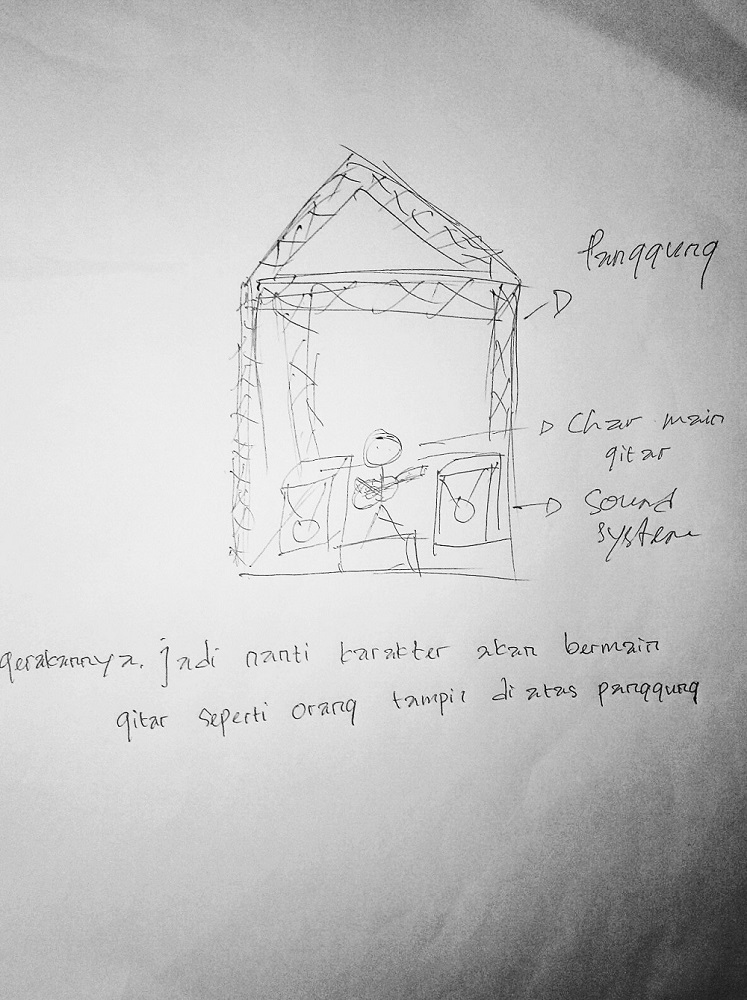 Panggung
Char main
gitar
Sound
system
gerakannya. jadi nanti karakter akan bermain
gitar seperti orang tampil di atas panggung